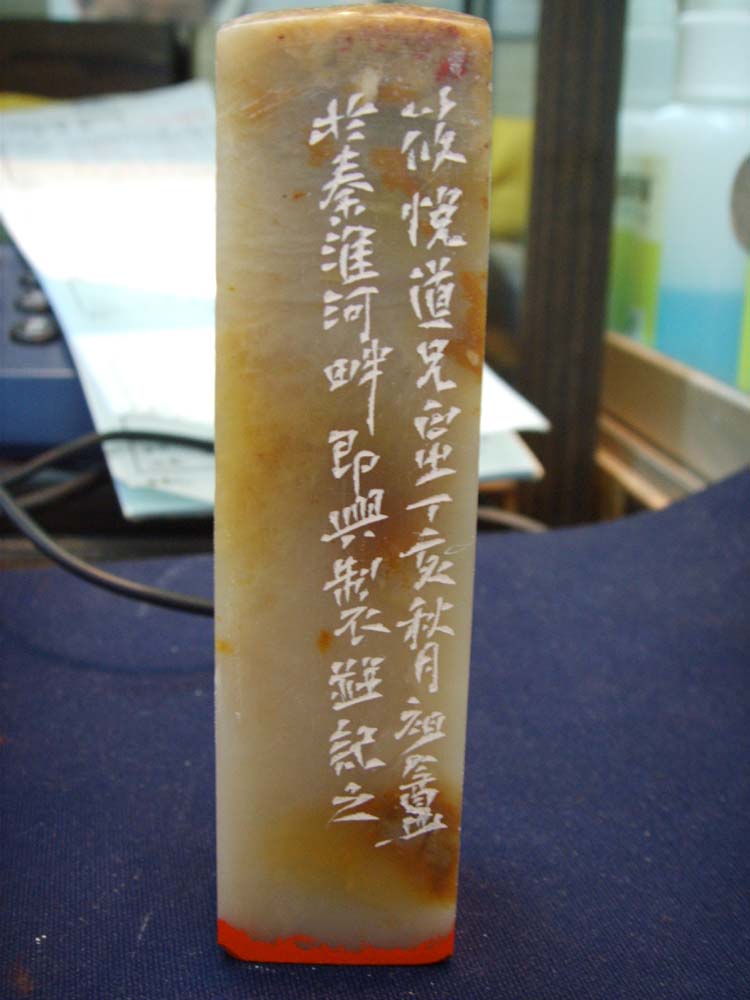 筱悅道兄丁亥秋月祖盦
於秦淮河畔即興製並記之